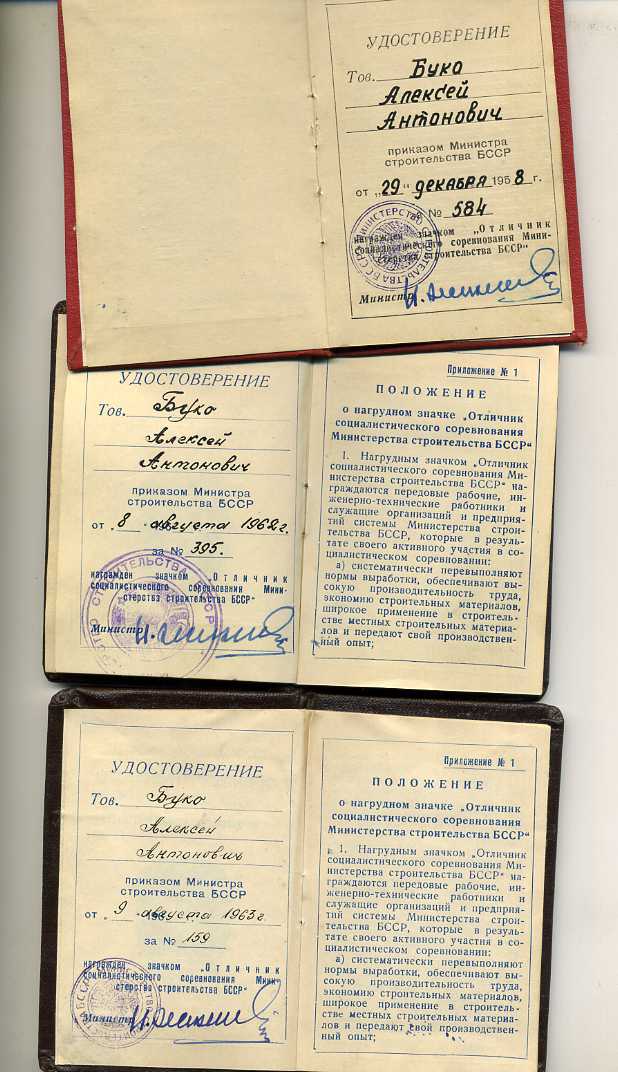 УДОСТОВЕРЕНИЕ
Тов. Буко
Алексей
Антонович
приказом Министра
строительства БССР
от „29“ декабря 1958 г.
№ 584
награжден значком „Отличник
социалистического соревнования Мини-
стерства строительства БССР“
Министр
УДОСТОВЕРЕНИЕ
Тов. Буко
Алексей
Антонович
приказом Министра
строительства БССР
от 8 августа 1962 г.
за № 395.
награжден значком „Отличник
социалистического соревнования Мини-
стерства строительства БССР“
Министр
Приложение № 1
ПОЛОЖЕНИЕ
о нагрудном значке „Отличник
социалистического соревнования
Министерства строительства БССР“
1. Нагрудным значком „Отличник
социалистического соревнования Ми-
нистерства строительства БССР“ на-
граждаются передовые рабочие, ин-
женерно-технические работники и
служащие организаций и предприя-
тий системы Министерства строи-
тельства БССР, которые в резуль-
тате своего активного участия в со-
циалистическом соревновании:
а) систематически перевыполняют
нормы выработки, обеспечивают вы-
сокую производительность труда,
экономию строительных материалов,
широкое применение в строитель-
стве местных строительных материа-
лов и передают свой производствен-
ный опыт;
УДОСТОВЕРЕНИЕ
Тов. Буко
Алексей
Антонович
приказом Министра
строительства БССР
от 9 августа 1963 г.
за № 159
награжден значком „Отличник
социалистического соревнования Мини-
стерства строительства БССР“
Министр
Приложение № 1
ПОЛОЖЕНИЕ
о нагрудном значке „Отличник
социалистического соревнования
Министерства строительства БССР“
1. Нагрудным значком „Отличник
социалистического соревнования Ми-
нистерства строительства БССР“ на-
граждаются передовые рабочие, ин-
женерно-технические работники и
служащие организаций и предприя-
тий системы Министерства строи-
тельства БССР, которые в резуль-
тате своего активного участия в со-
циалистическом соревновании:
а) систематически перевыполняют
нормы выработки, обеспечивают вы-
сокую производительность труда,
экономию строительных материалов,
широкое применение в строитель-
стве местных строительных материа-
лов и передают свой производствен-
ный опыт;